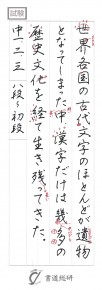 試験
世界各国の古代文字のほとんどが遺物
となってしまった中、漢字だけは幾多の
歴史文化を経て生き残ってきた。
中一二三 八段~初段
書道総研